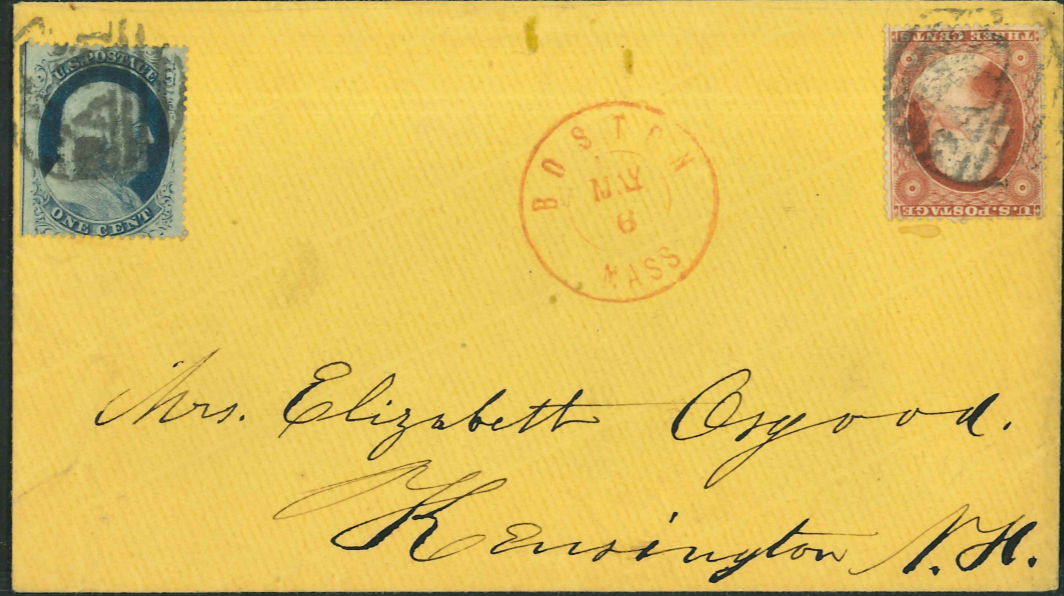 U.S. POSTAGE
ONE CENT
BOSTON
MAY
6
MASS
THREE CENTS
U.S. POSTAGE
Mrs. Elizabeth Osgood.
Kensington N.H.